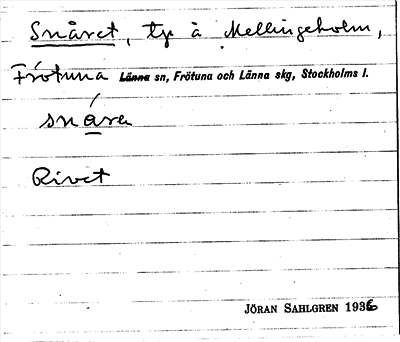 Snåret, tp å Mellingeholm,
Frötuna Länna sn, Frötuna och Länna skg, Stockholms l.
snåra
Rivet
JÖRAN SAHLGREN 1936